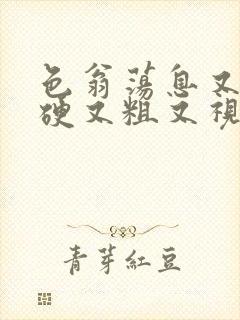 色翁蕩息又
硬又粗又視
青芽紅豆